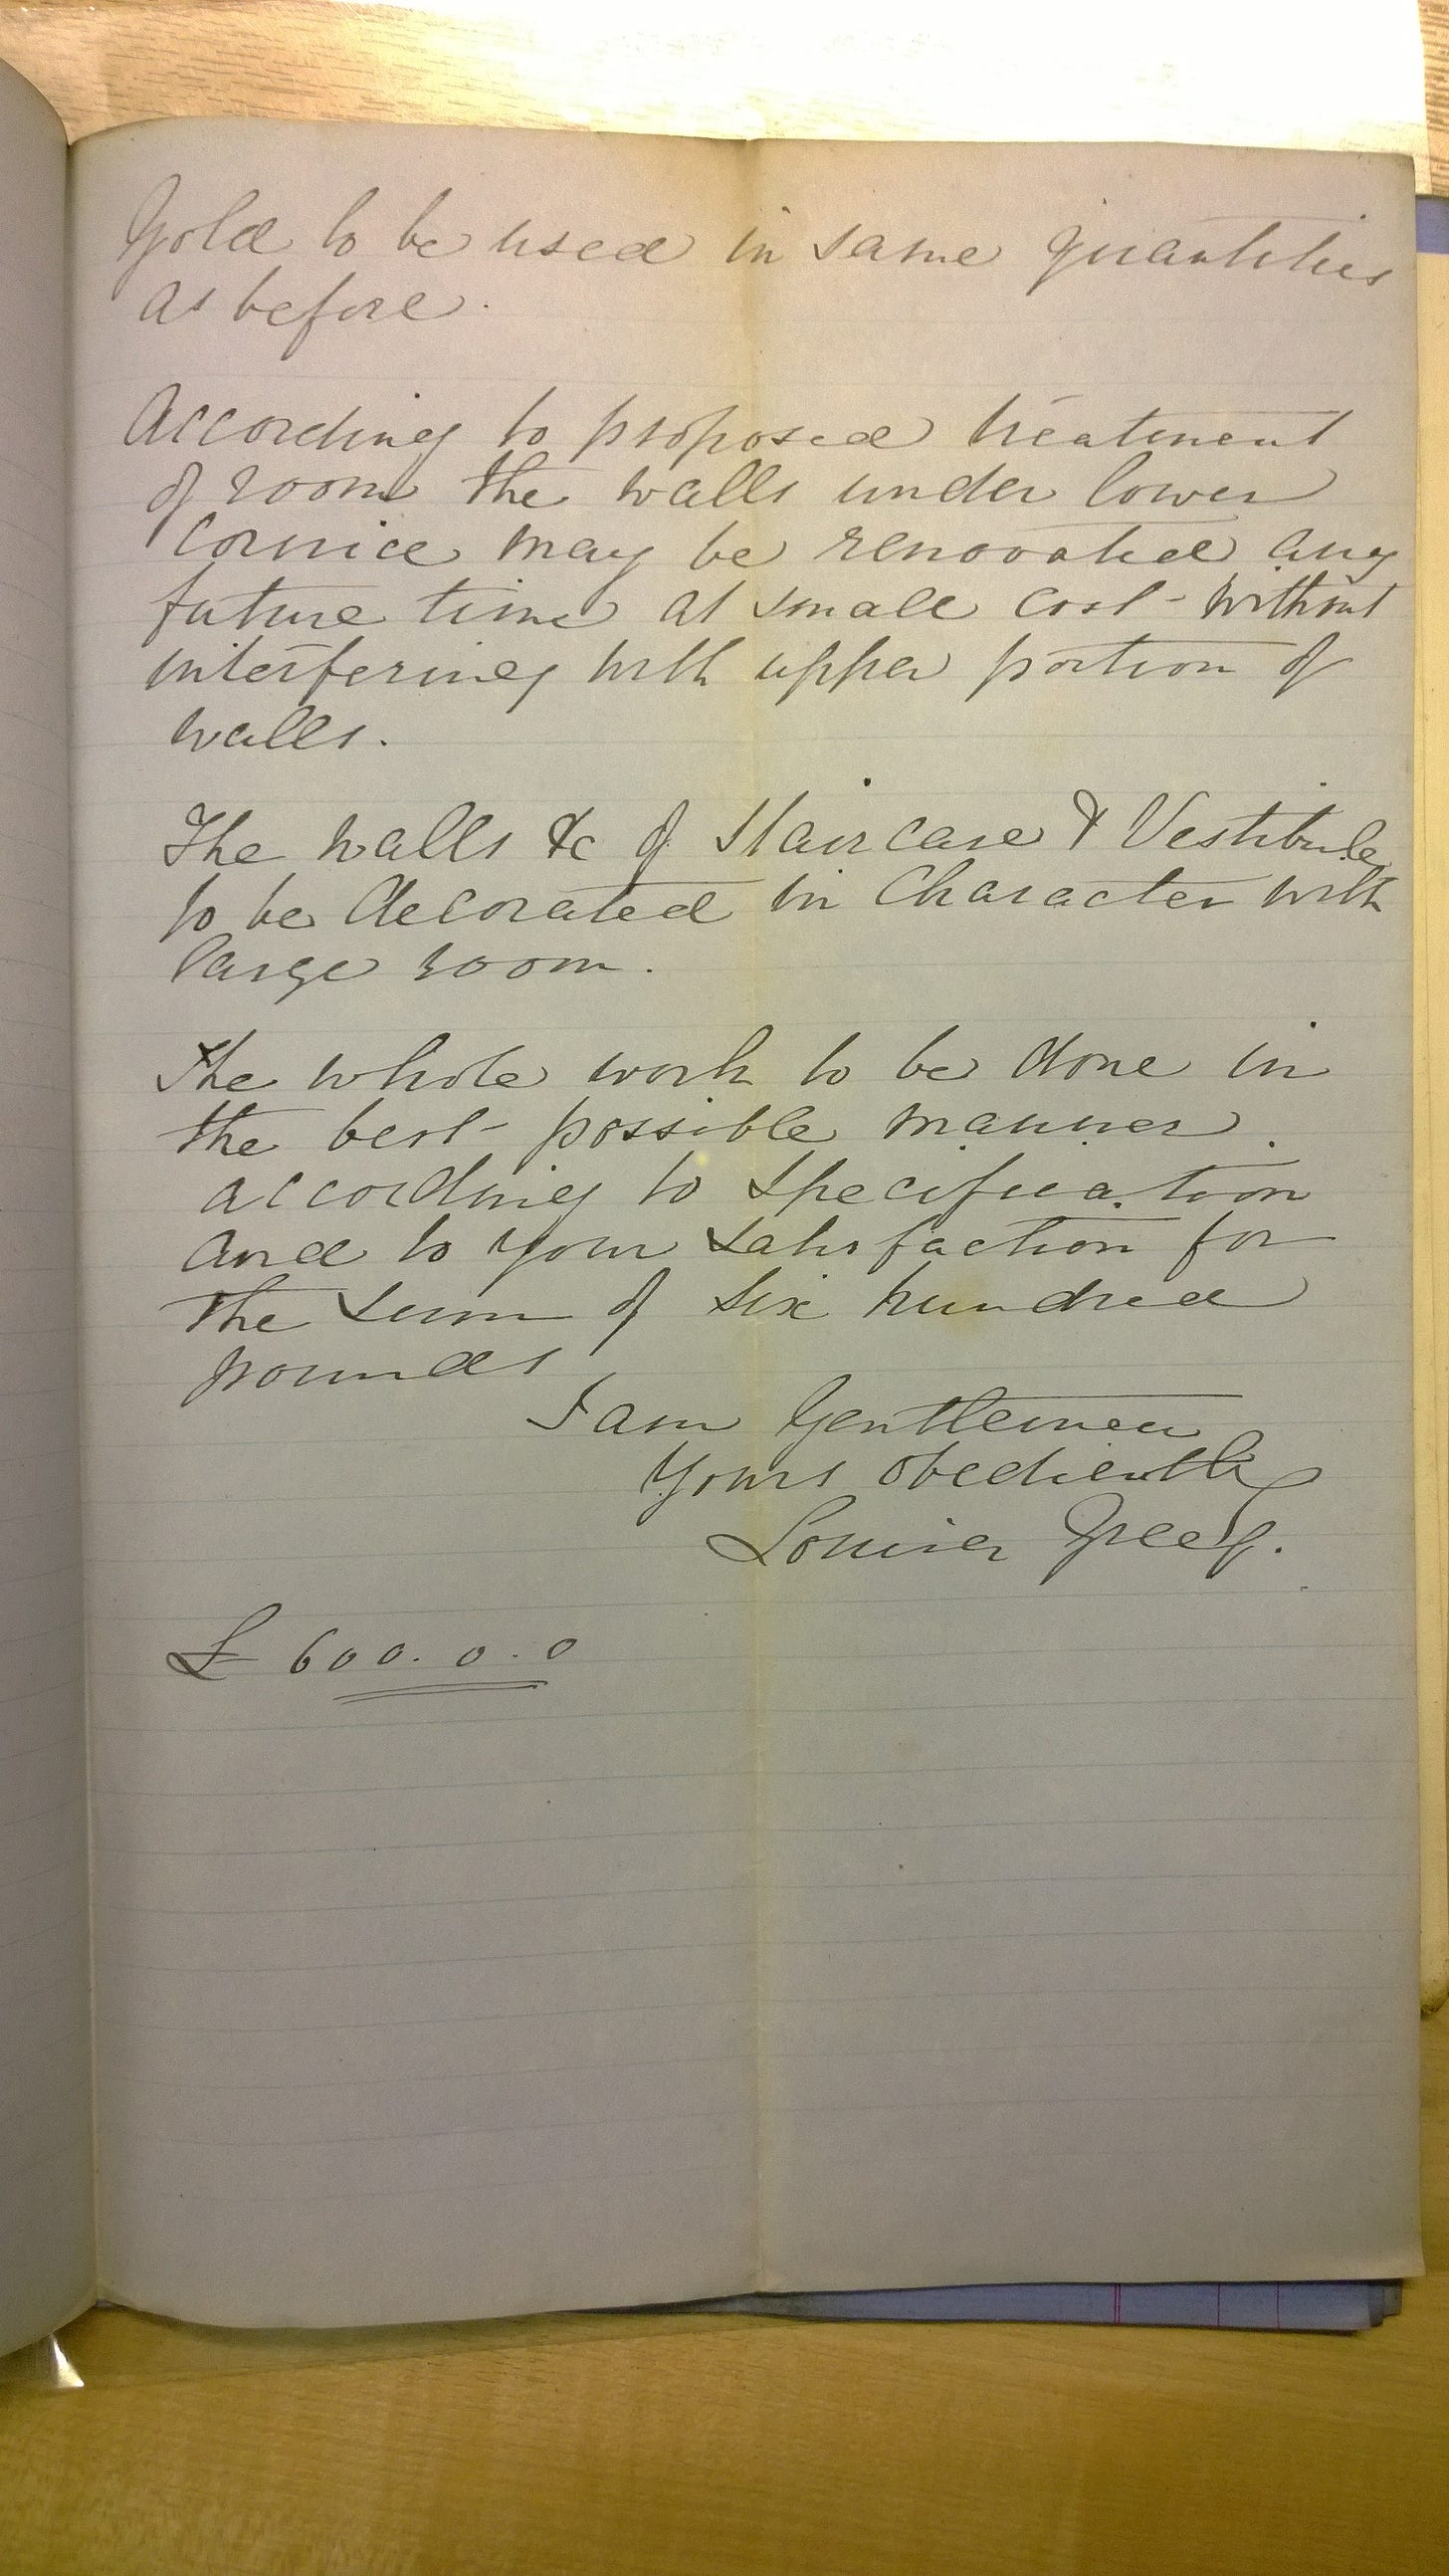 Gold to be used in same quantities
as before.
According to proposed treatment
of room the walls under lower
Cornice may be renovated any
future time at small cost - without
interfering with upper portion of
walls.
The walls &c of Staircase & Vestibule
to be decorated in Character with
large room.
The whole work to be done in
the best possible manner.
according to specification
and to your satisfaction for
the sum of six hundred
pounds
I am Gentlemen
Yours obediently
£ 600. 0. 0